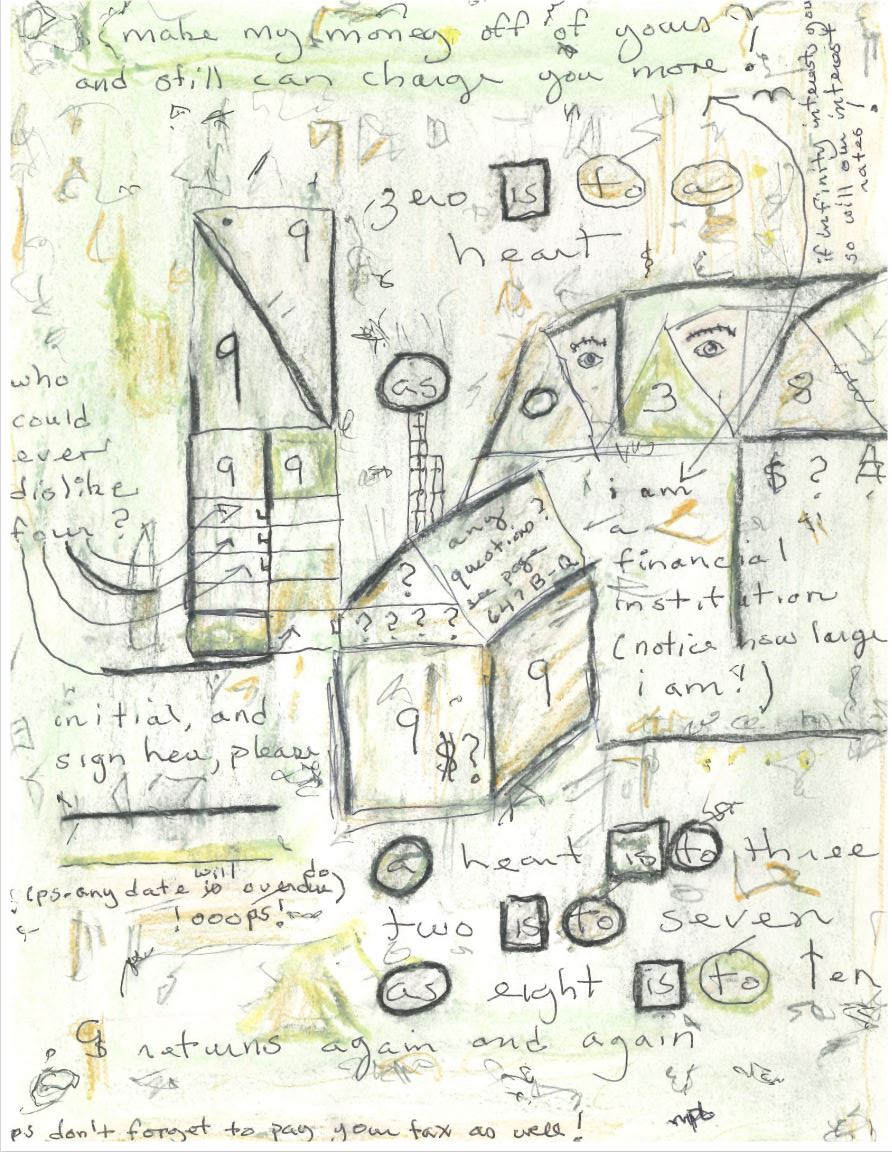 (make my money off of yours
and still can charge you more!
if infinity interests you
so will our interest
rates!
zero is to a
heart
$
9
9
as
0
3
8
who
could
ever
dislike
four?
9 9
any
question?
see page
647 B-Q
?
? ? ? ?
9
9
$?
$ ?
i am
a
financial
institution
(notice how large
i am!)
initial, and
sign hea, please
will do
(ps-any date is overdue)
!ooops!
a heart is to three
two is to seven
as eight is to ten
9 returns again and again
ps don't forget to pay your tax as well!
mpb